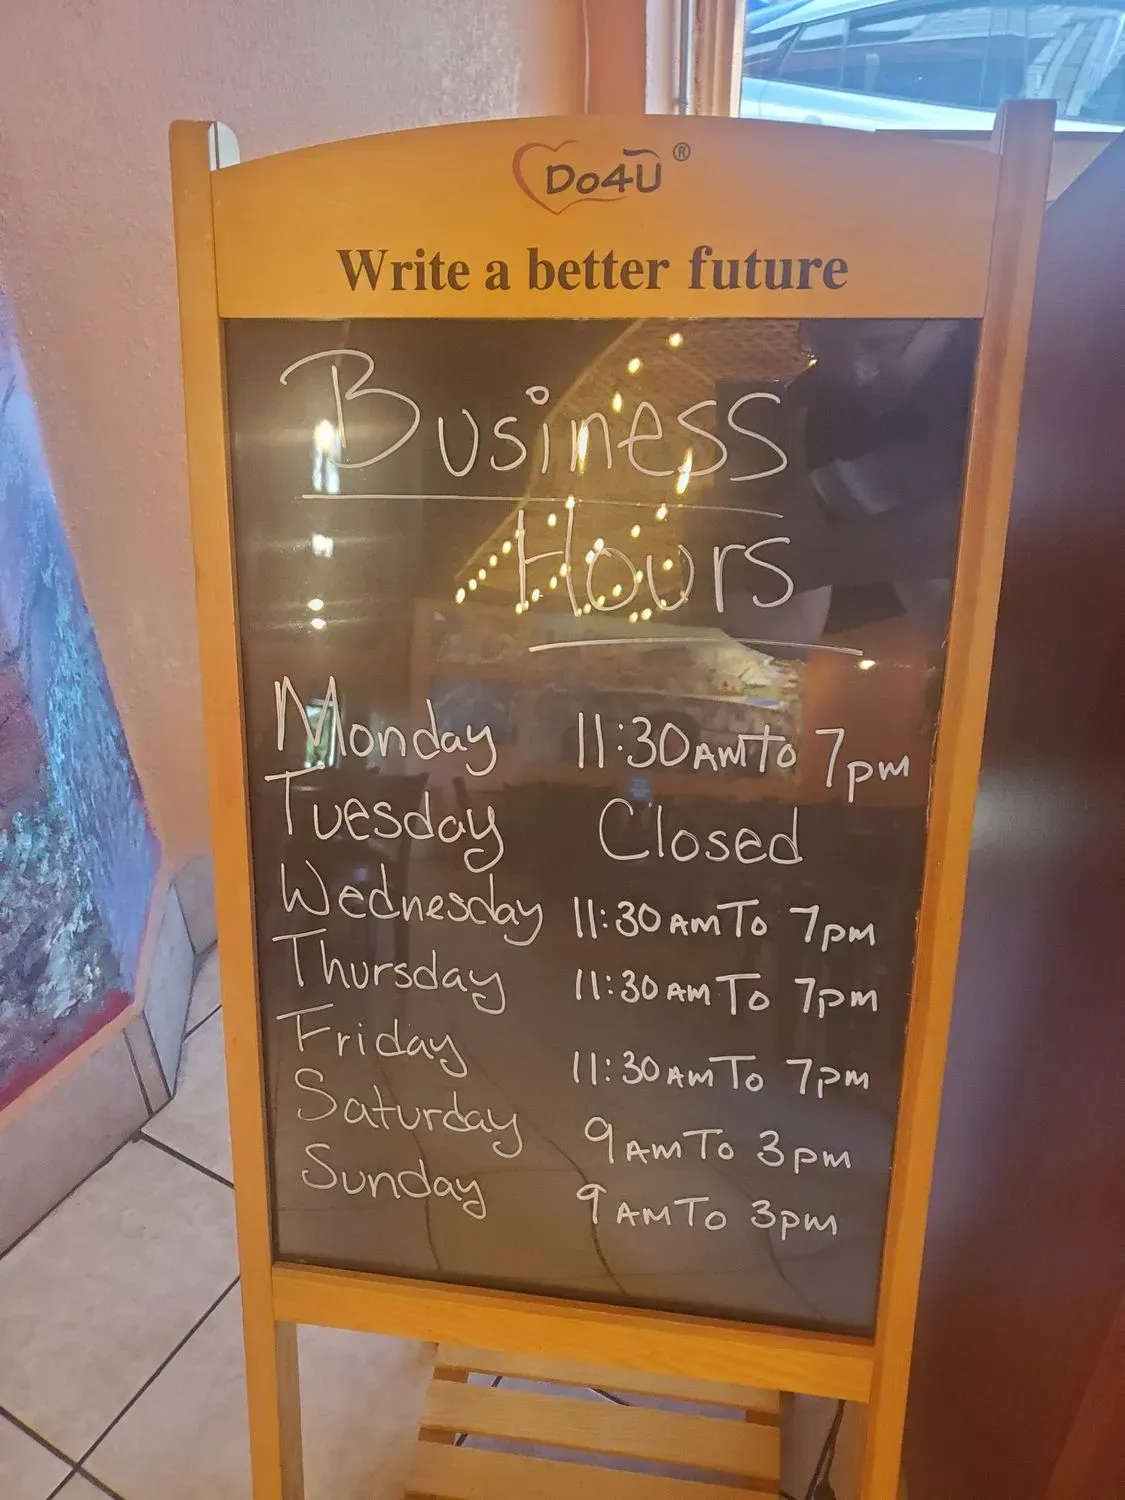 Do4U®
Write a better future
Business
Hours
Monday 11:30AM to 7pm
Tuesday Closed
Wednesday 11:30AM To 7pm
Thursday 11:30AM To 7pm
Friday 11:30AM To 7pm
Saturday 9AM To 3pm
Sunday 9AM To 3pm